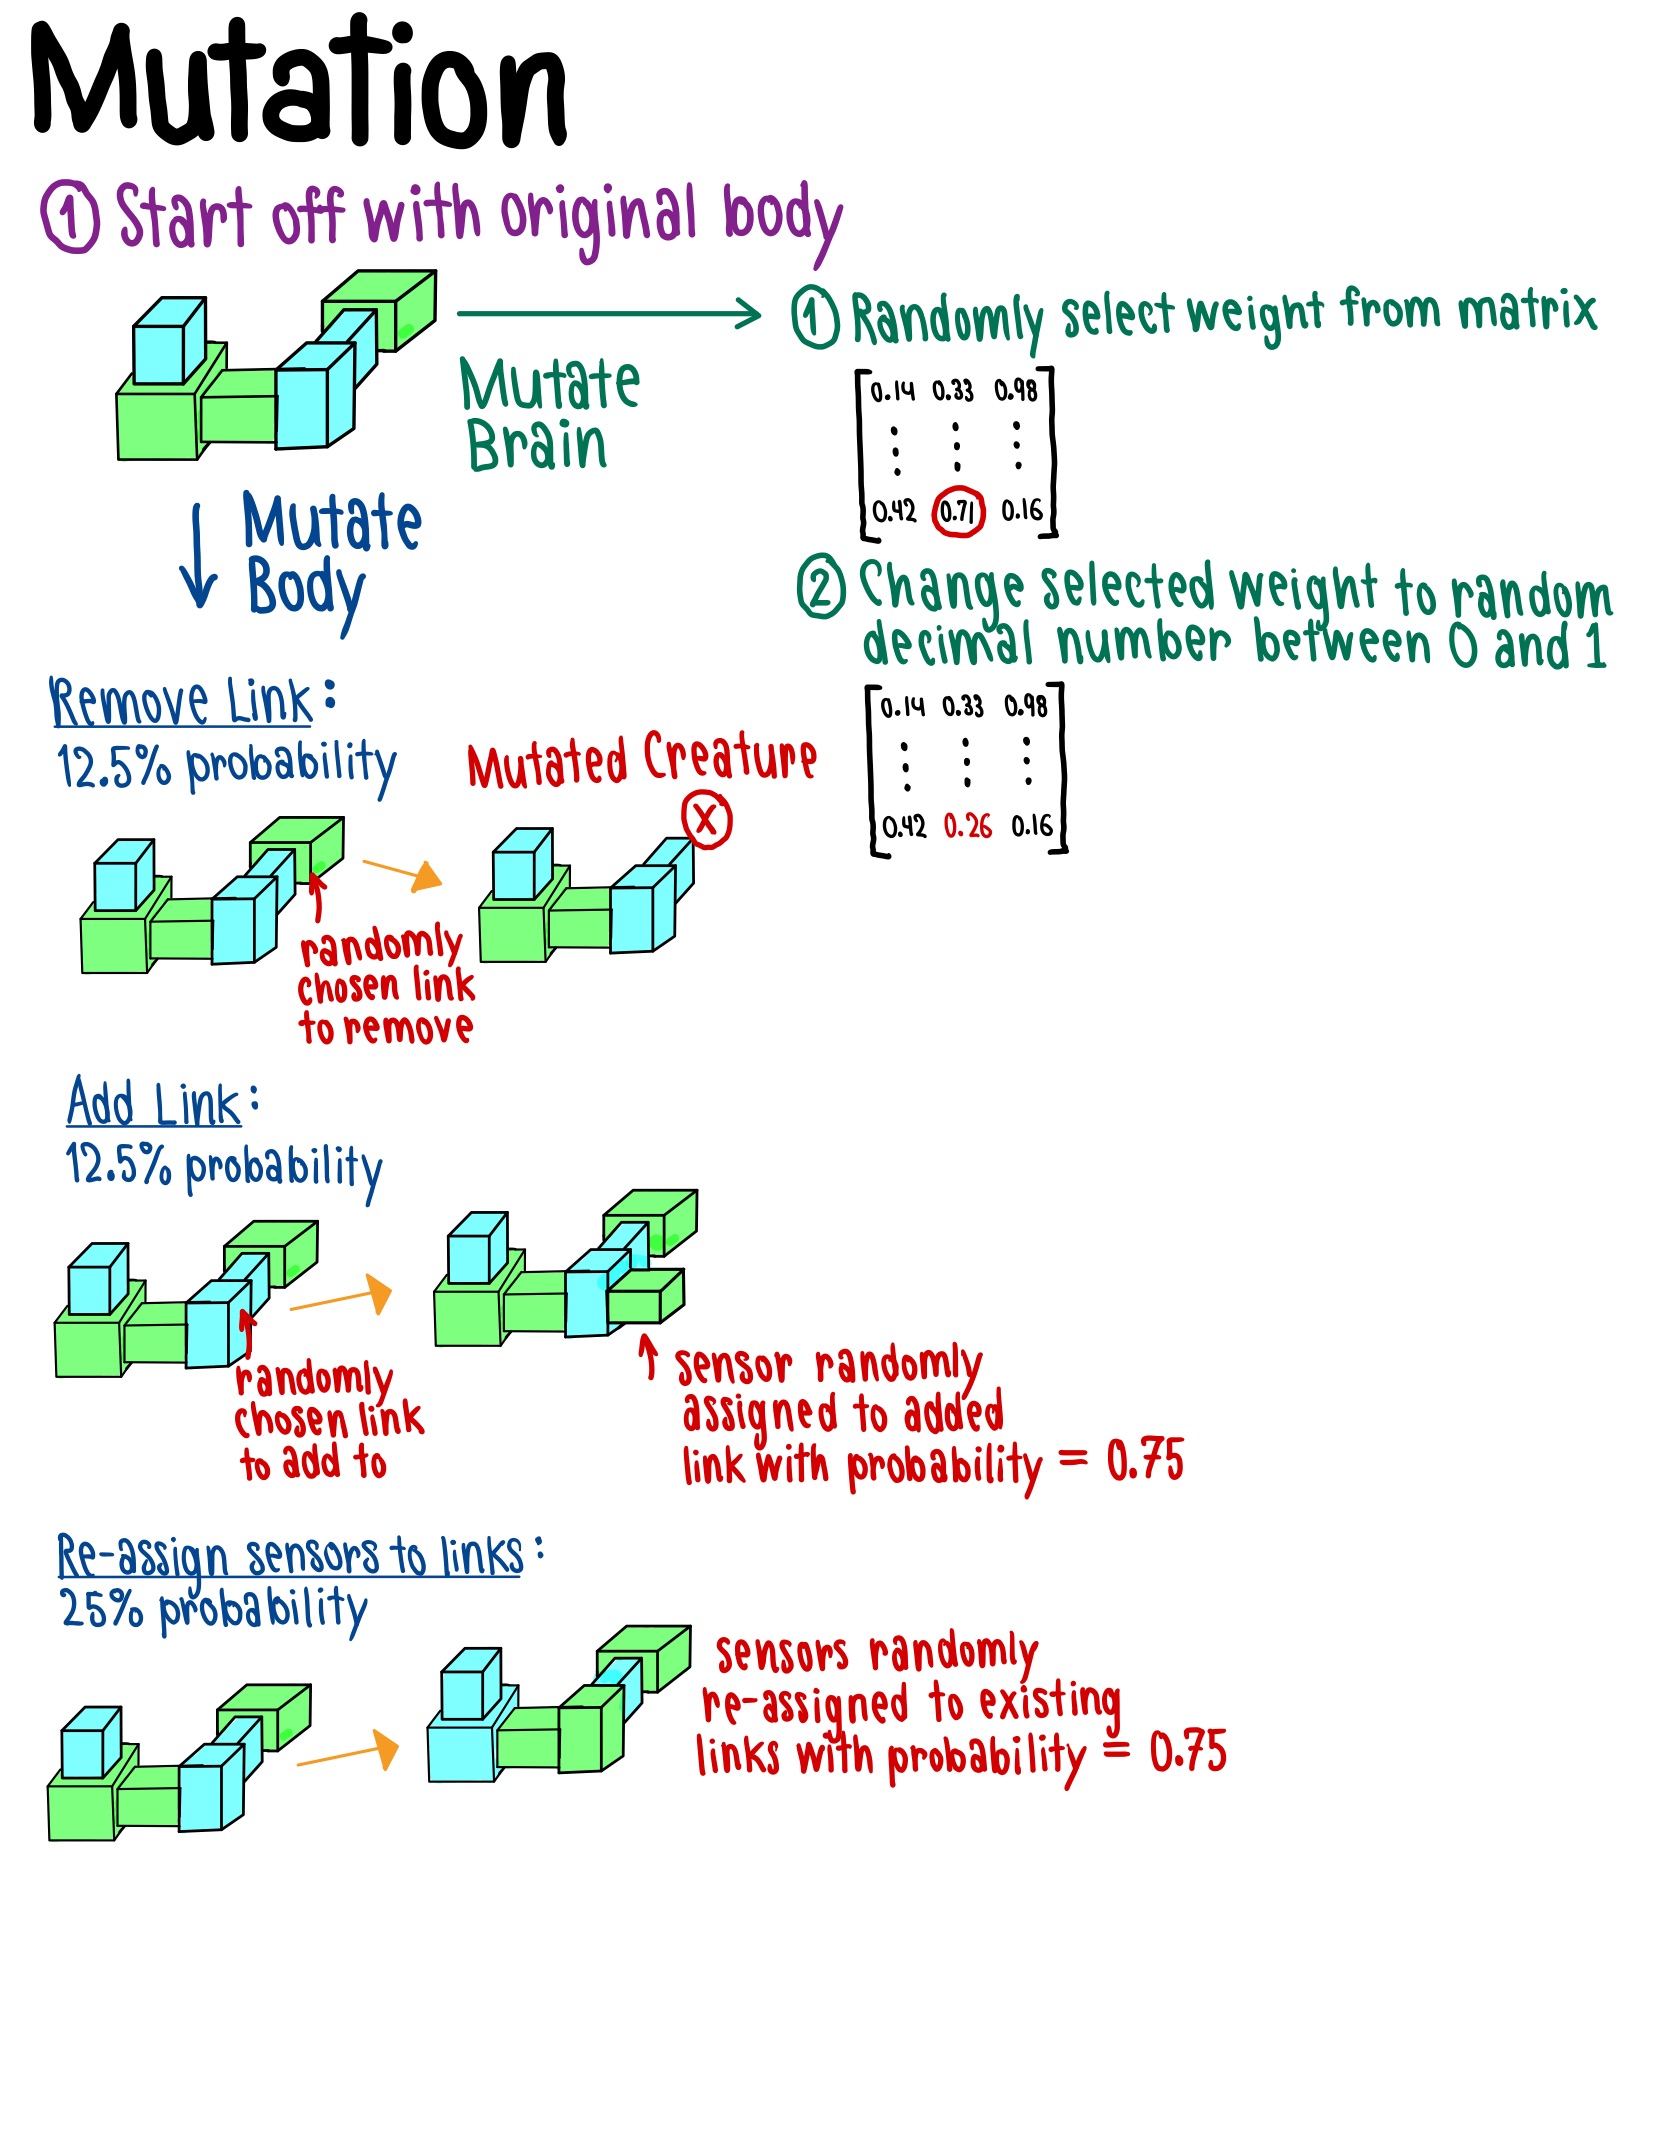 Mutation
① Start off with original body
Mutate
Brain
① Randomly select weight from matrix
0.14 0.33 0.98
⋮ ⋮ ⋮
0.42 0.71 0.16
② Change selected weight to random
decimal number between 0 and 1
0.14 0.33 0.98
⋮ ⋮ ⋮
0.42 0.26 0.16
Mutate
Body
Remove Link:
12.5% probability
Mutated Creature
X
randomly
chosen link
to remove
Add Link:
12.5% probability
randomly
chosen link
to add to
sensor randomly
assigned to added
link with probability = 0.75
Re-assign sensors to links:
25% probability
sensors randomly
re-assigned to existing
links with probability = 0.75